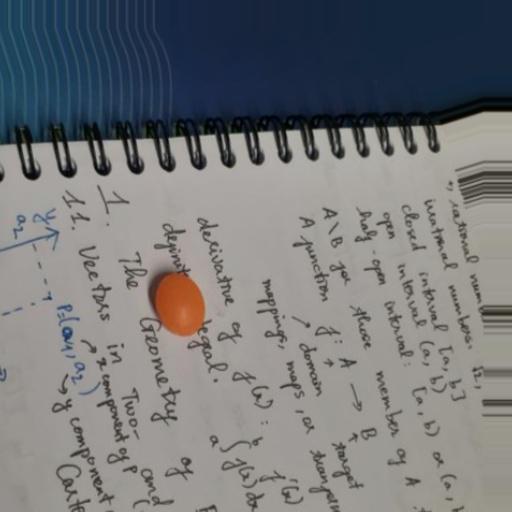 , rational num
irrational numbers: ℝ,
closed interval [a, b]
open interval (a, b)
half-open interval: [a, b) or (a, b
A\B for those member of A
A function f: A → B
↗ domain ↑ target
mappings, maps, or transform
derivative of f(x): f'(x)
definit egral. a∫b f(x) dx
1. The Geometry of
1.1. Vectors in Two- and
y
a₂ P=(a₁, a₂) ↗ x component of P
↘ y component
Cart